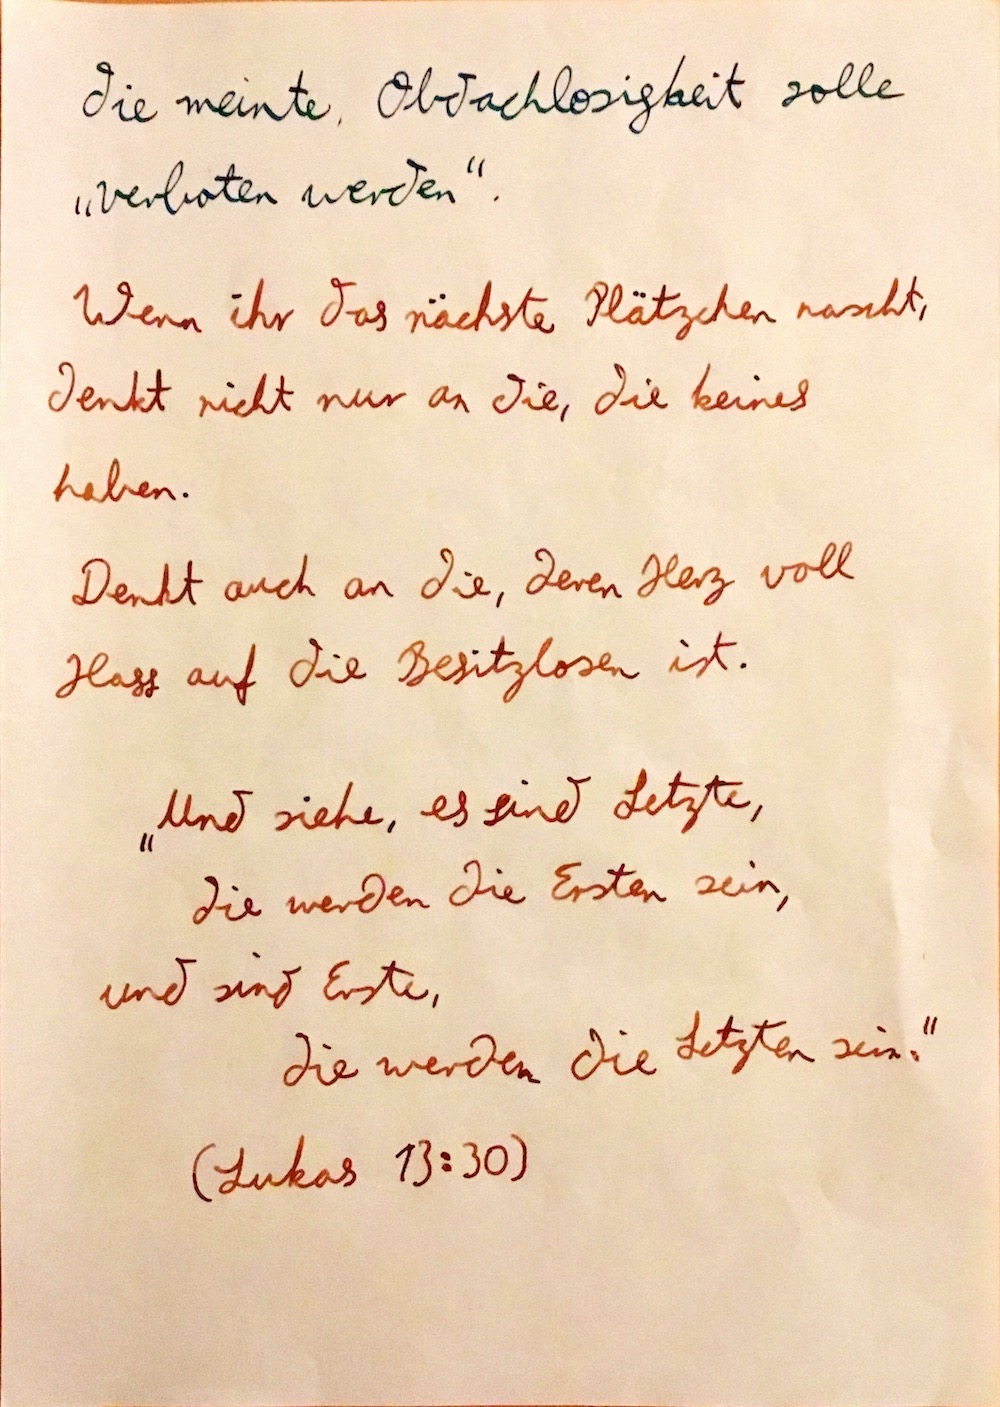 die meinte, Obdachlosigkeit solle
„verboten werden“.
Wenn ihr das nächste Plätzchen nascht,
denkt nicht nur an die, die keines
haben.
Denkt auch an die, deren Herz voll
Hass auf die Besitzlosen ist.
„Und siehe, es sind Letzte,
die werden die Ersten sein,
und sind Erste,
die werden die Letzten sein.“
(Lukas 13:30)